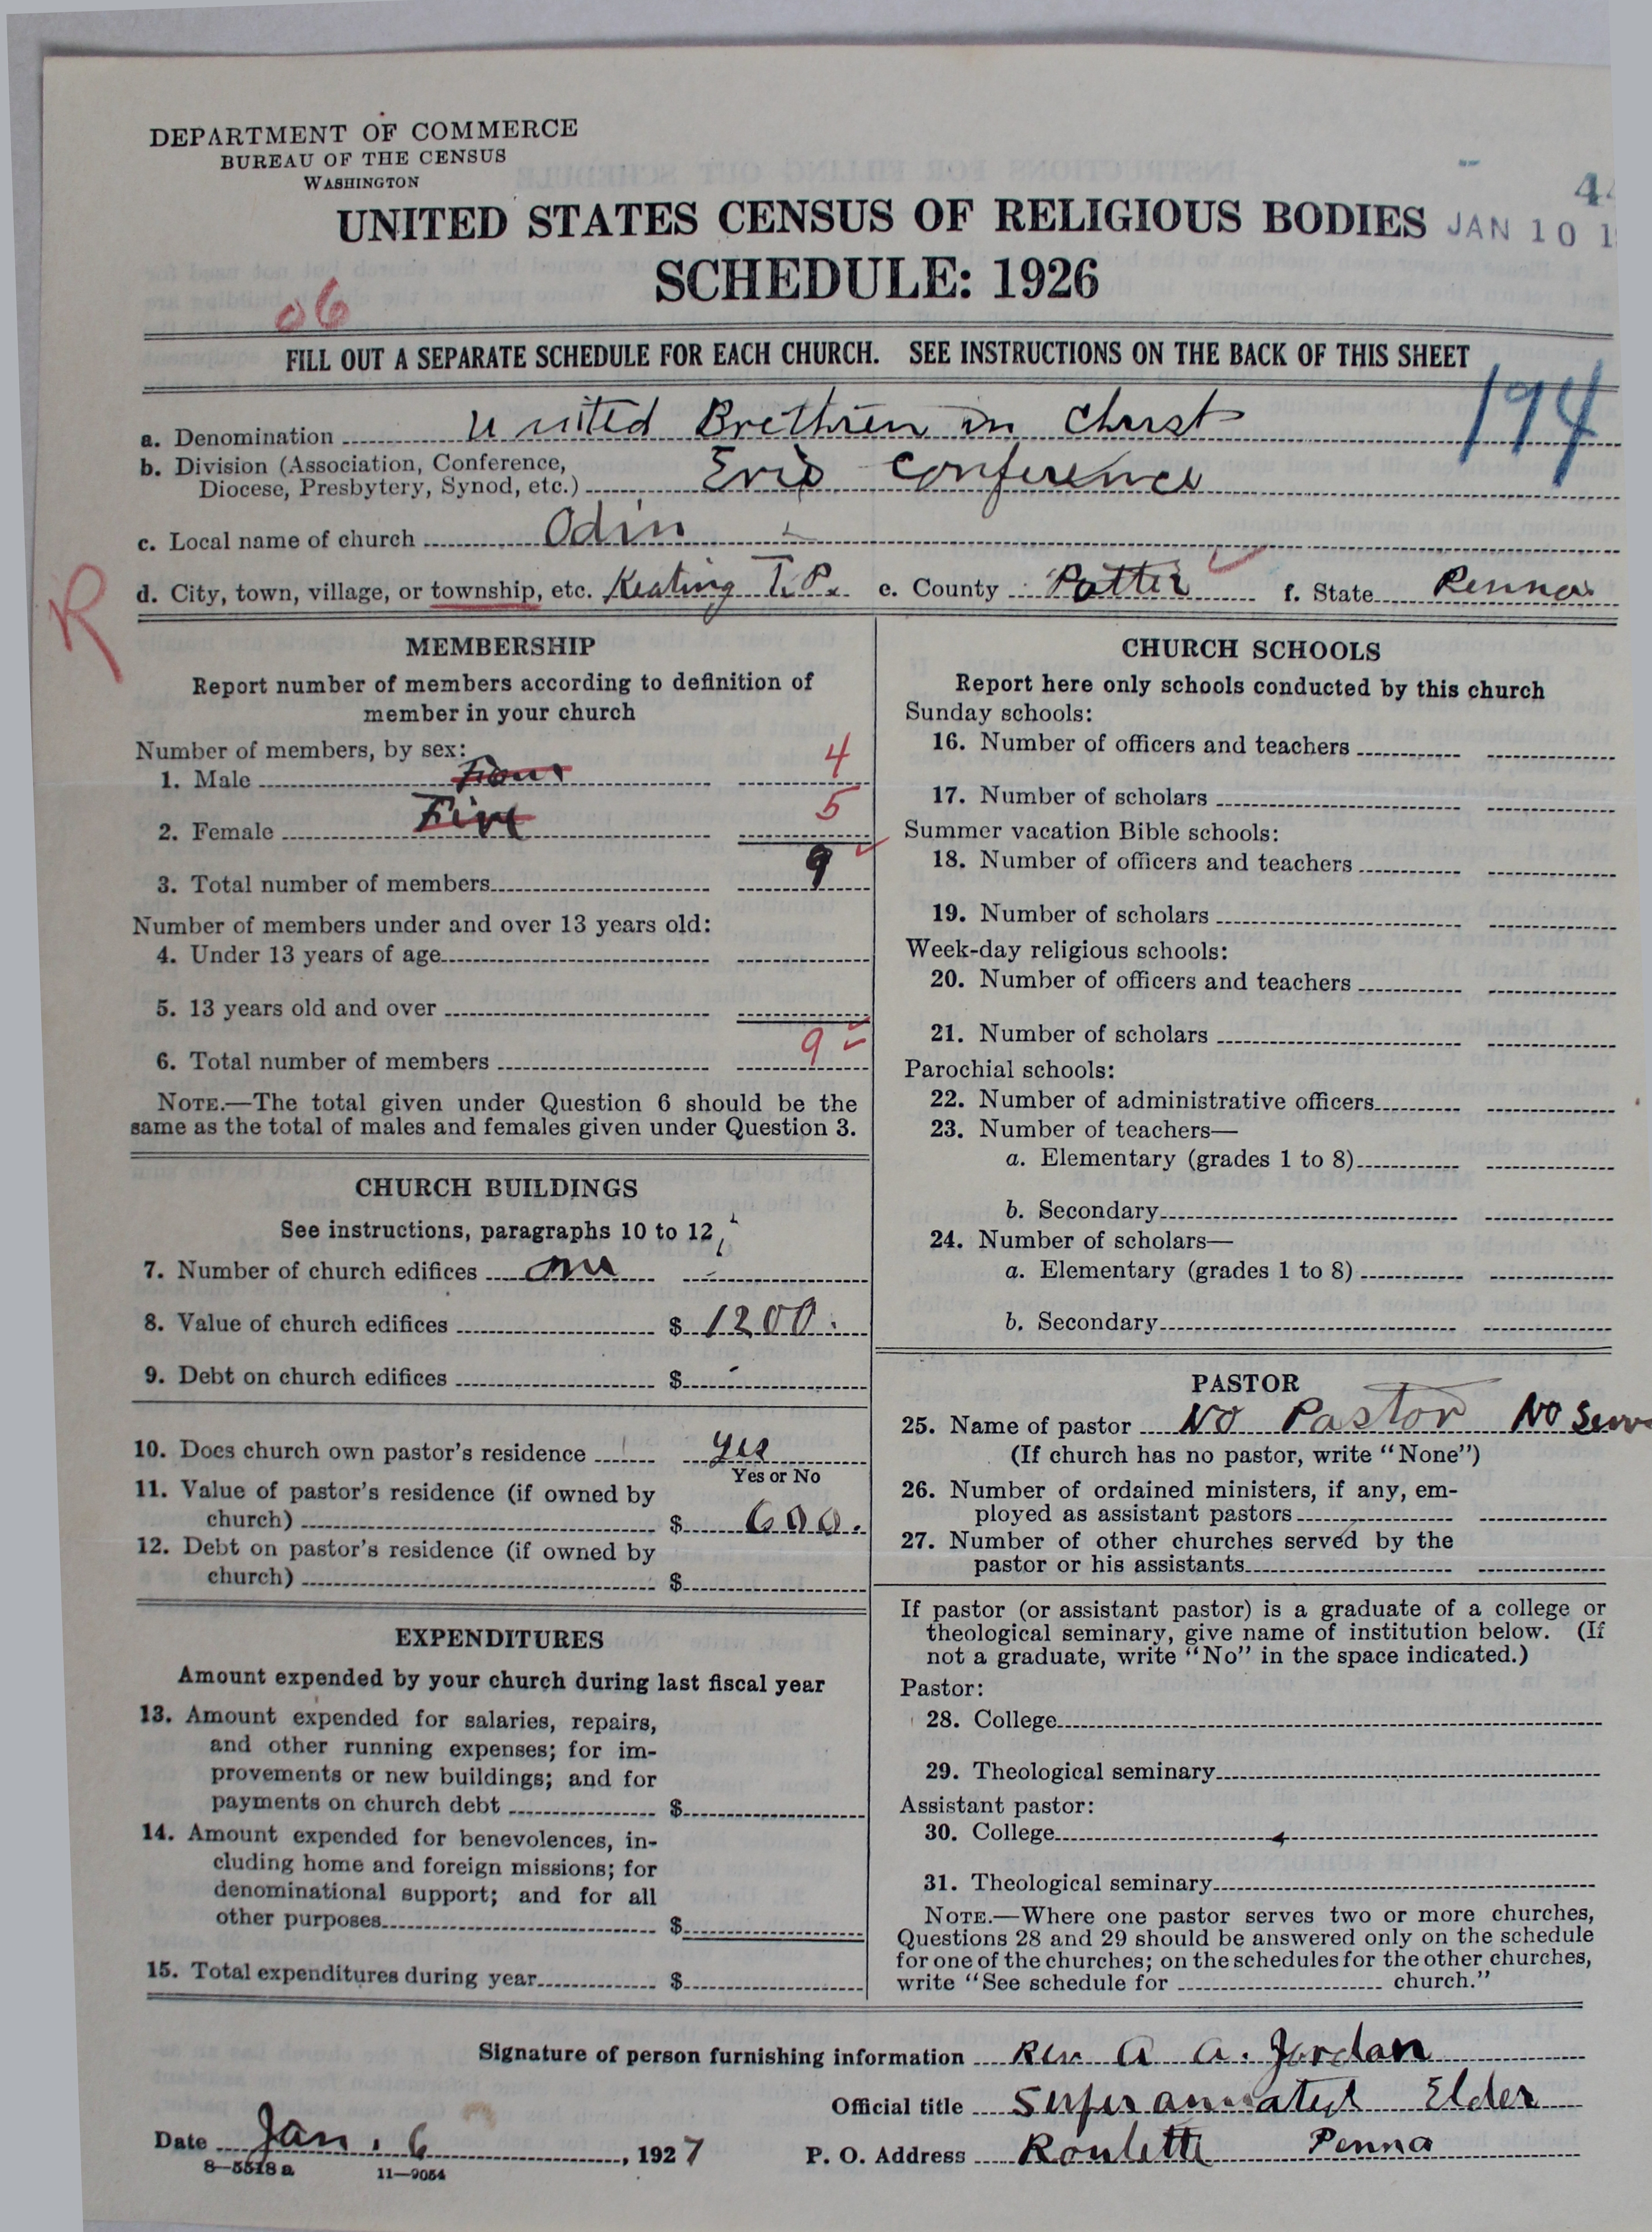 DEPARTMENT OF COMMERCE
BUREAU OF THE CENSUS
WASHINGTON
44
UNITED STATES CENSUS OF RELIGIOUS BODIES JAN 10 1
SCHEDULE: 1926
06
FILL OUT A SEPARATE SCHEDULE FOR EACH CHURCH. SEE INSTRUCTIONS ON THE BACK OF THIS SHEET
194
a. Denomination United Brethren in Christ
b. Division (Association, Conference,
Diocese, Presbytery, Synod, etc.) Erie Conference
c. Local name of church Odin
R
d. City, town, village, or township, etc. Keating T.P. e. County Potter f. State Penna
MEMBERSHIP
Report number of members according to definition of
member in your church
Number of members, by sex:
1. Male Four 4
2. Female Five 5
3. Total number of members 9
Number of members under and over 13 years old:
4. Under 13 years of age
5. 13 years old and over
6. Total number of members 9
NOTE.—The total given under Question 6 should be the
same as the total of males and females given under Question 3.
CHURCH BUILDINGS
See instructions, paragraphs 10 to 12
7. Number of church edifices one
8. Value of church edifices $ 1200.
9. Debt on church edifices $ -
10. Does church own pastor's residence yes
Yes or No
11. Value of pastor's residence (if owned by
church) $ 600.
12. Debt on pastor's residence (if owned by
church) $
EXPENDITURES
Amount expended by your church during last fiscal year
13. Amount expended for salaries, repairs,
and other running expenses; for im-
provements or new buildings; and for
payments on church debt $
14. Amount expended for benevolences, in-
cluding home and foreign missions; for
denominational support; and for all
other purposes $
15. Total expenditures during year $
CHURCH SCHOOLS
Report here only schools conducted by this church
Sunday schools:
16. Number of officers and teachers
17. Number of scholars
Summer vacation Bible schools:
18. Number of officers and teachers
19. Number of scholars
Week-day religious schools:
20. Number of officers and teachers
21. Number of scholars
Parochial schools:
22. Number of administrative officers
23. Number of teachers—
a. Elementary (grades 1 to 8)
b. Secondary
24. Number of scholars—
a. Elementary (grades 1 to 8)
b. Secondary
PASTOR
25. Name of pastor No Pastor No Serv
(If church has no pastor, write "None")
26. Number of ordained ministers, if any, em-
ployed as assistant pastors
27. Number of other churches served by the
pastor or his assistants
If pastor (or assistant pastor) is a graduate of a college or
theological seminary, give name of institution below. (If
not a graduate, write "No" in the space indicated.)
Pastor:
28. College
29. Theological seminary
Assistant pastor:
30. College
31. Theological seminary
NOTE.—Where one pastor serves two or more churches,
Questions 28 and 29 should be answered only on the schedule
for one of the churches; on the schedules for the other churches,
write "See schedule for church."
Signature of person furnishing information Rev. A. A. Jordan
Official title Superannuated Elder
Date Jan. 6, 1927 P. O. Address Roulette Penna
8—5518 a 11—9054